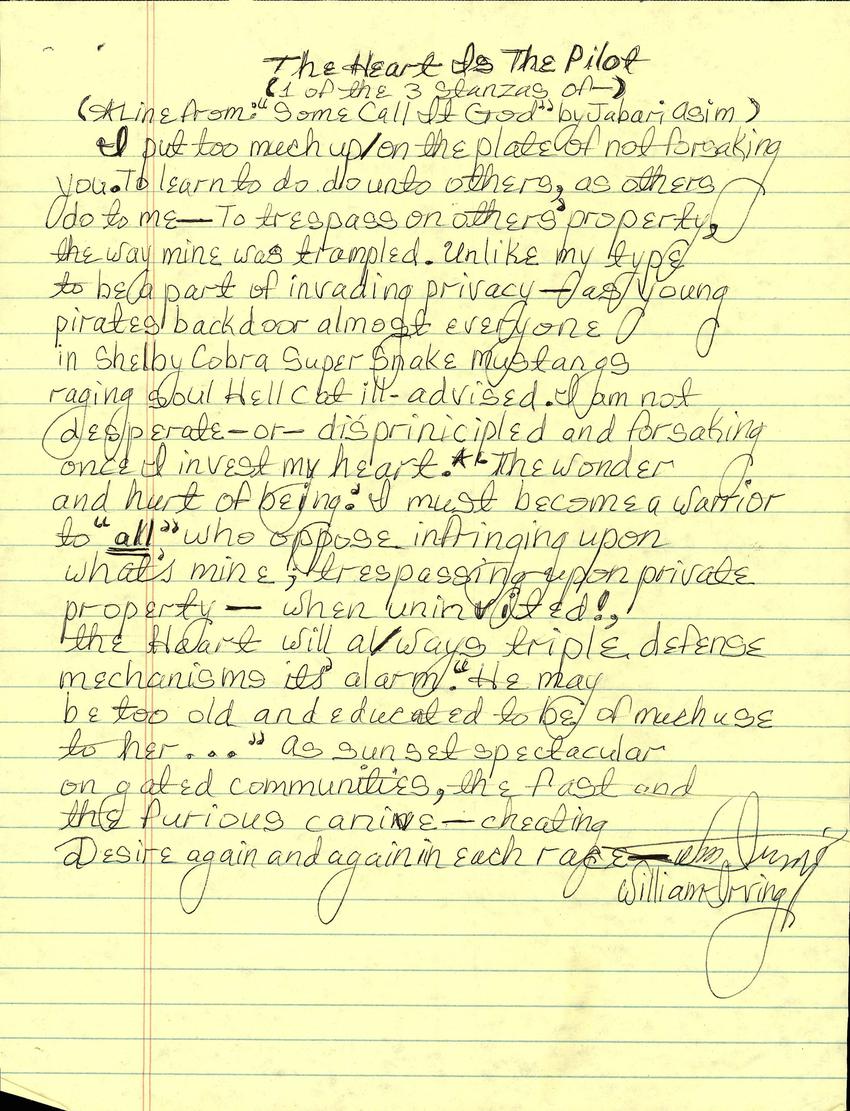 The Heart Is The Pilot
(1 of the 3 stanzas of—)
(*A Line from: "Some Call It God" by Jabari Asim)
I put too mech up/on the plate of not forsaking
you. To learn to do do unto others, as others
do to me— To trespass on others' property,
the way mine was trampled. Unlike my type
to be a part of invading privacy—(as) young
pirates backdoor almost everyone
in Shelby Cobra Super Snake Mustangs
raging soul Hell Cat ill-advised. I am not
desperate—or— disprinicipled and forsaking
once I invest my heart. *"The wonder
and hurt of being." I must become a warrior
to "all" who oppose infringing upon
what's mine; trespassing upon private
property— when uninvited!,
the Heart will always triple defense
mechanisms its' alarm. "He may
be too old and educated to be of much use
to her..." As sunset spectacular
on gated communities, the fast and
the furious canine—cheating
Desire again and again in each race—
William Irving